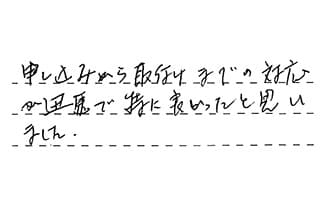 申し込みから取付けまでの対応
が迅速で特に良かったと思い
ました.